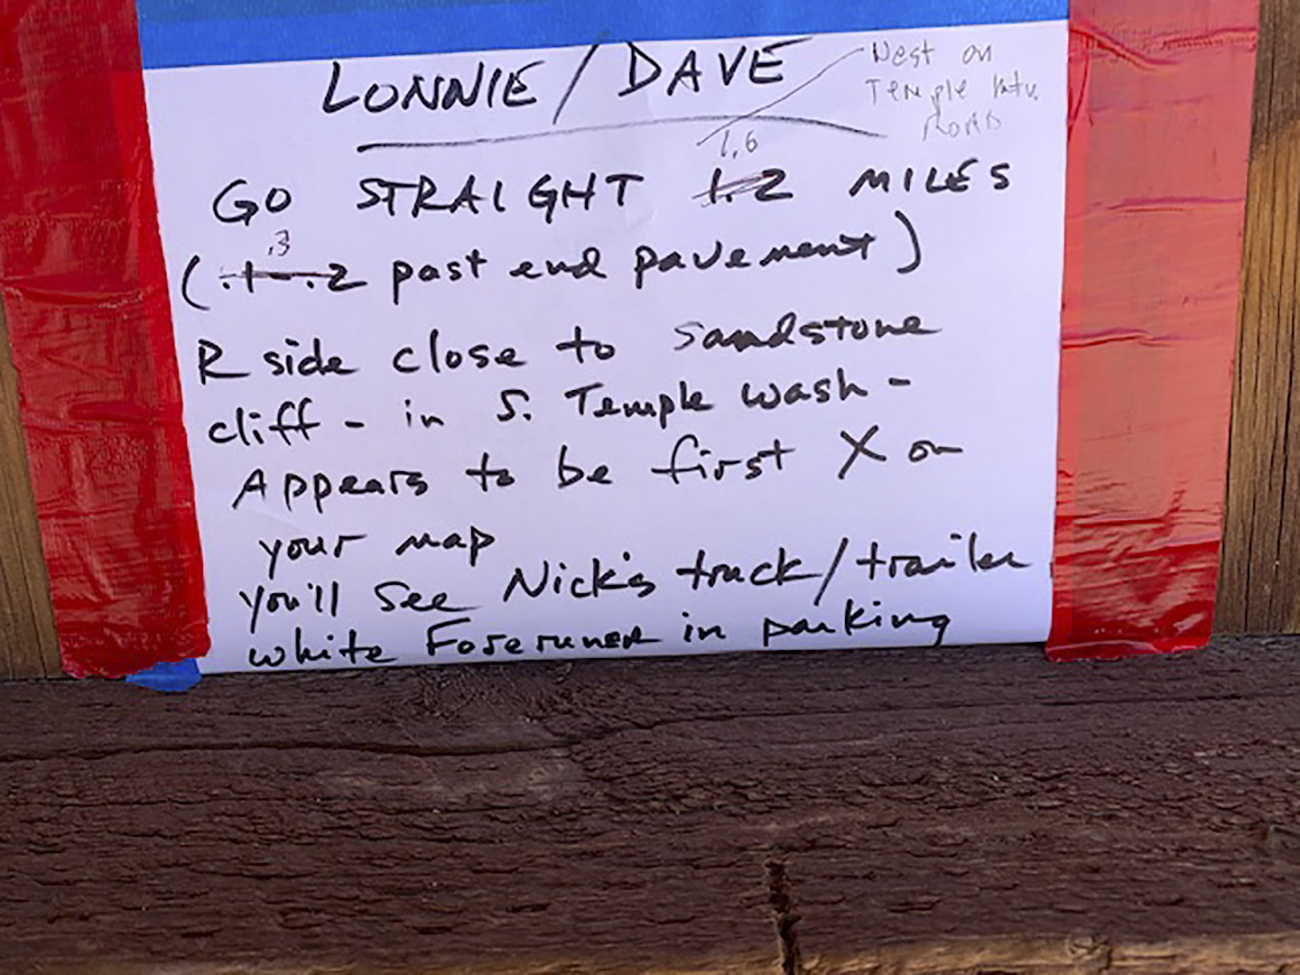 LONNIE / DAVE
West on
Temple Mtn.
ROAD
1.6
GO STRAIGHT 1.2 MILES
.3
(.1-.2 past end pavement)
R side close to sandstone
cliff - in S. Temple wash -
Appears to be first X on
your map
you'll see Nick's truck/trailer
white Forerunner in parking